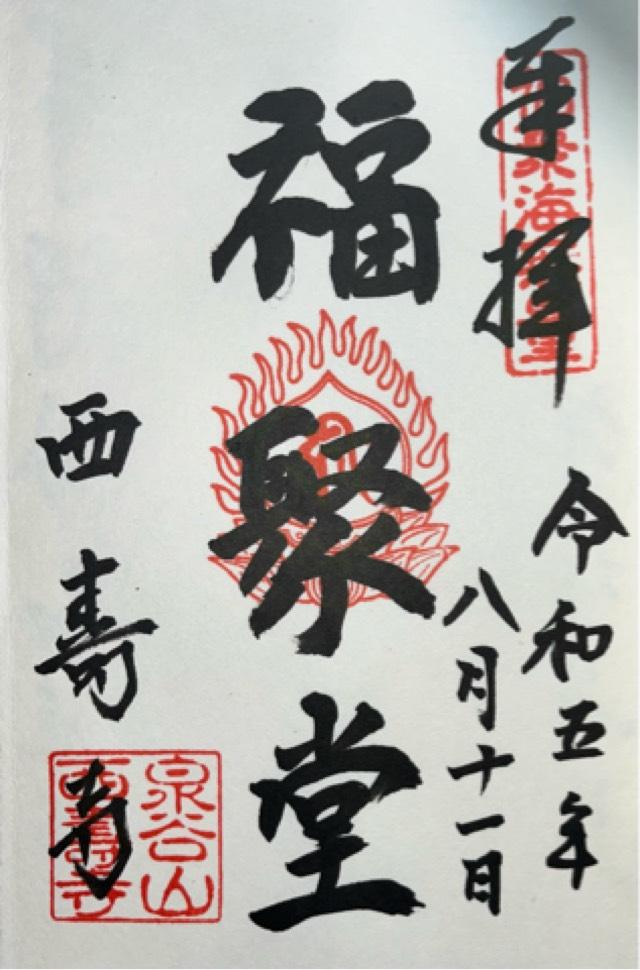 奉拝
福聚海無量
令和五年
八月十一日
福聚堂
西寿寺
泉谷山
西壽寺